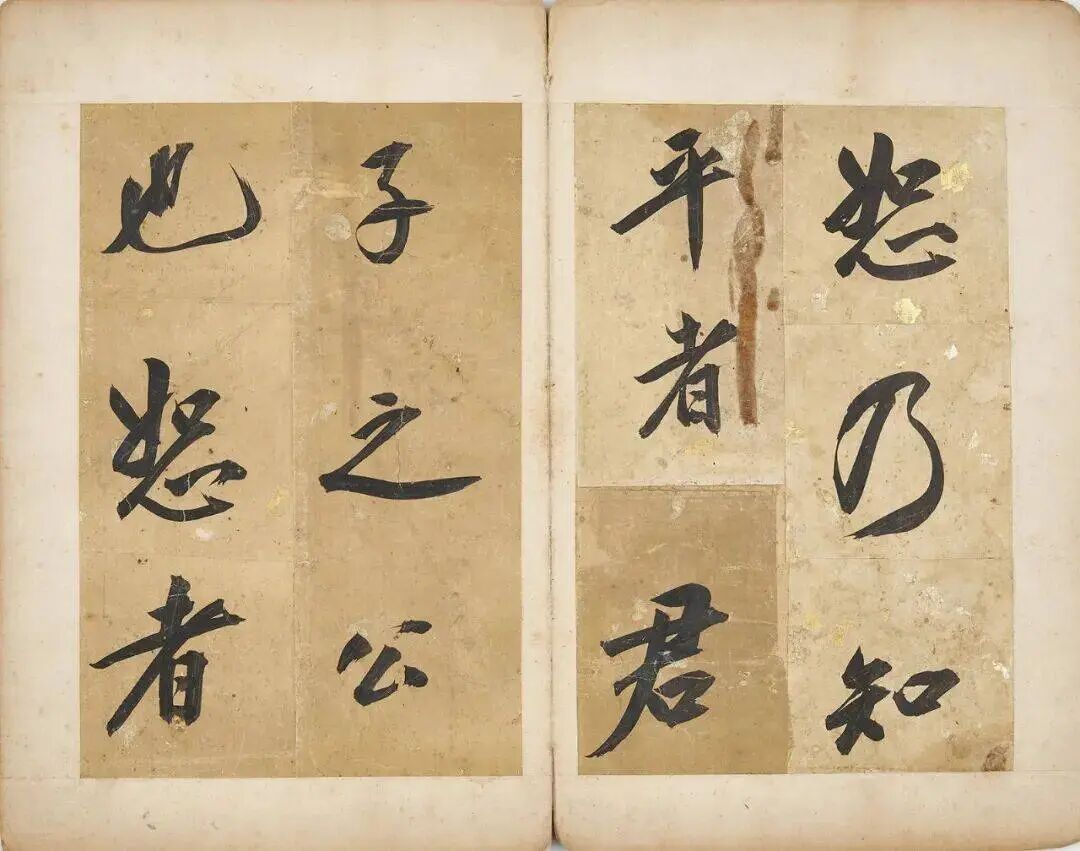 恕乃知
平者君
子之公
也恕者